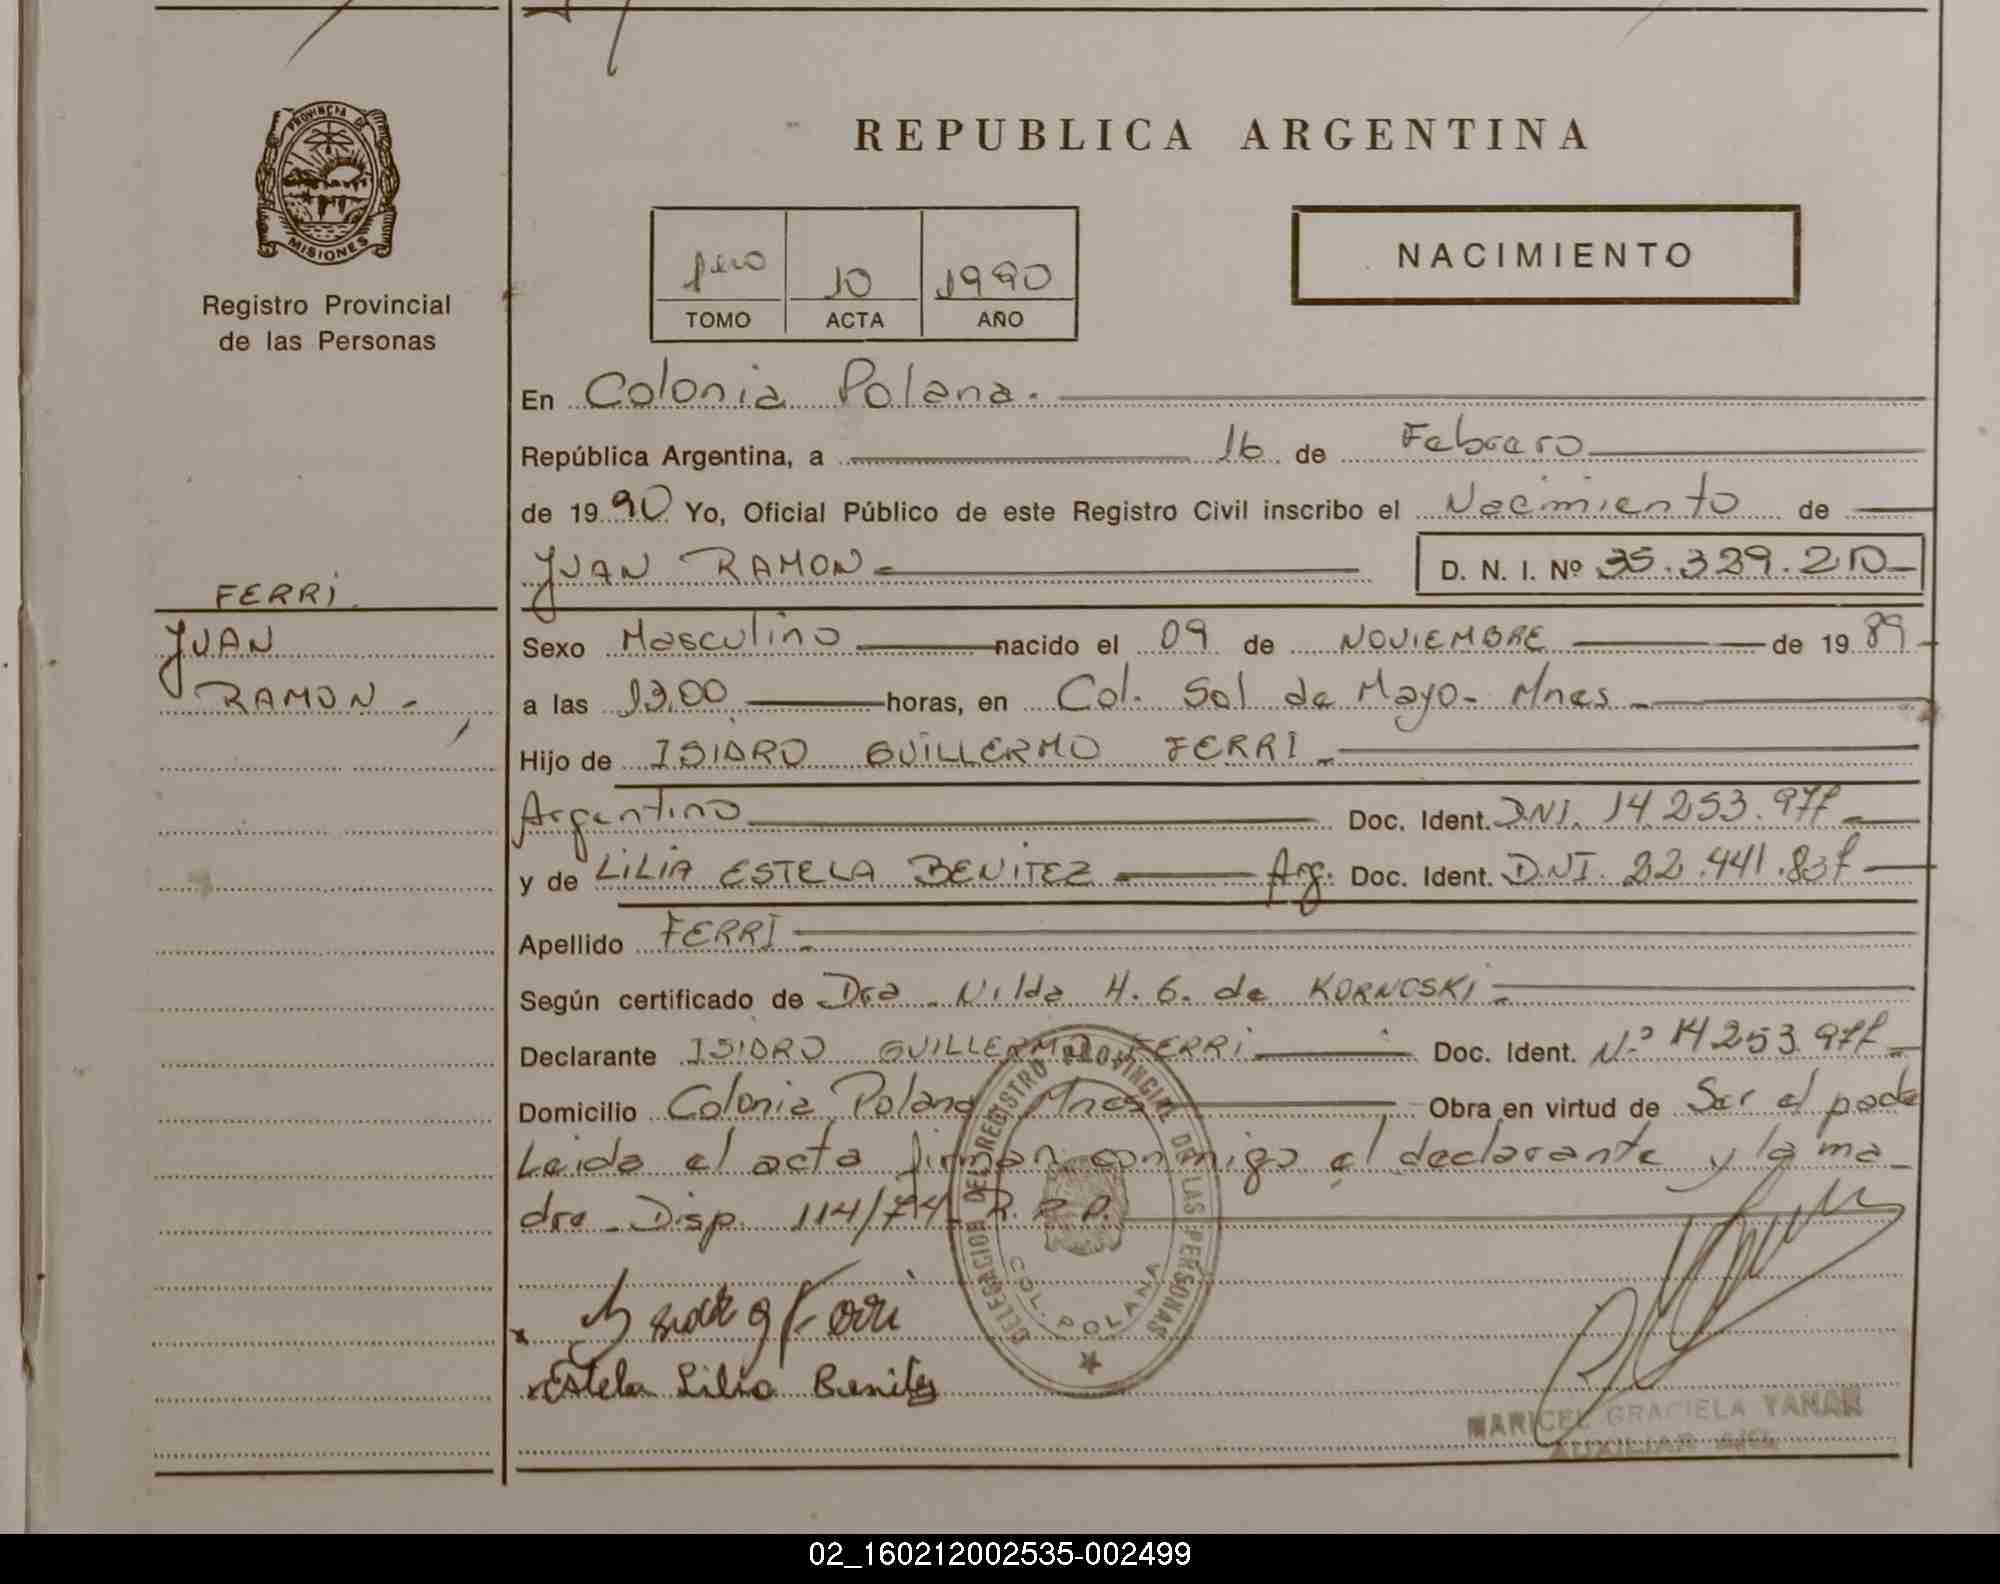 PROVINCIA DE
MISIONES
Registro Provincial
de las Personas
FERRI
JUAN
RAMON -
REPUBLICA ARGENTINA
1ero 10 1990
TOMO ACTA AÑO
NACIMIENTO
En Colonia Polana.
República Argentina, a 16 de Febrero
de 1990 Yo, Oficial Público de este Registro Civil inscribo el Nacimiento de
JUAN RAMON - D. N. I. Nº 35.329.210
Sexo Masculino nacido el 09 de NOVIEMBRE de 1989
a las 13,00 horas, en Col. Sol de Mayo - Mnes -
Hijo de ISIDRO GUILLERMO FERRI -
Argentino Doc. Ident. DNI. 14.253.977
y de LILIA ESTELA BENITEZ Arg. Doc. Ident. DNI. 22.441.837
Apellido FERRI -
Según certificado de Dra - Nilda H. G. de KORNOSKI -
Declarante ISIDRO GUILLERMO FERRI Doc. Ident. Nº 14253977
Domicilio Colonia Polana Mnes Obra en virtud de Ser el padre
Leida el acta firman conmigo el declarante y la ma_
dre - Disp. 114/74 R. P. P.
DELEGACION DEL REGISTRO PROVINCIAL DE LAS PERSONAS
COL. POLANA
Estela Lilia Benitez
MARICEL GRACIELA YANAK
AUXILIAR
02_160212002535-002499